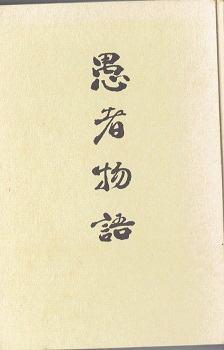 愚者物語